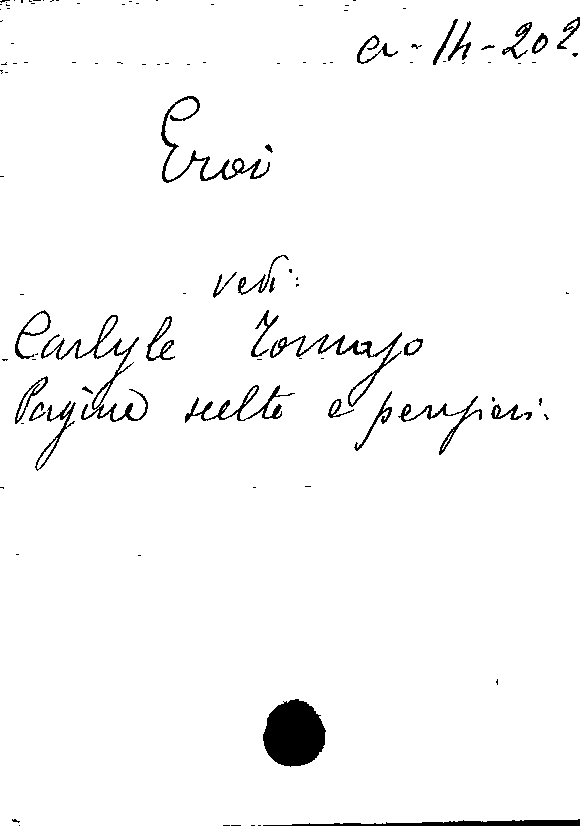 a-14-202.
Eroi
vedi:
Carlyle Tomaso
Pagine scelte e pensieri.